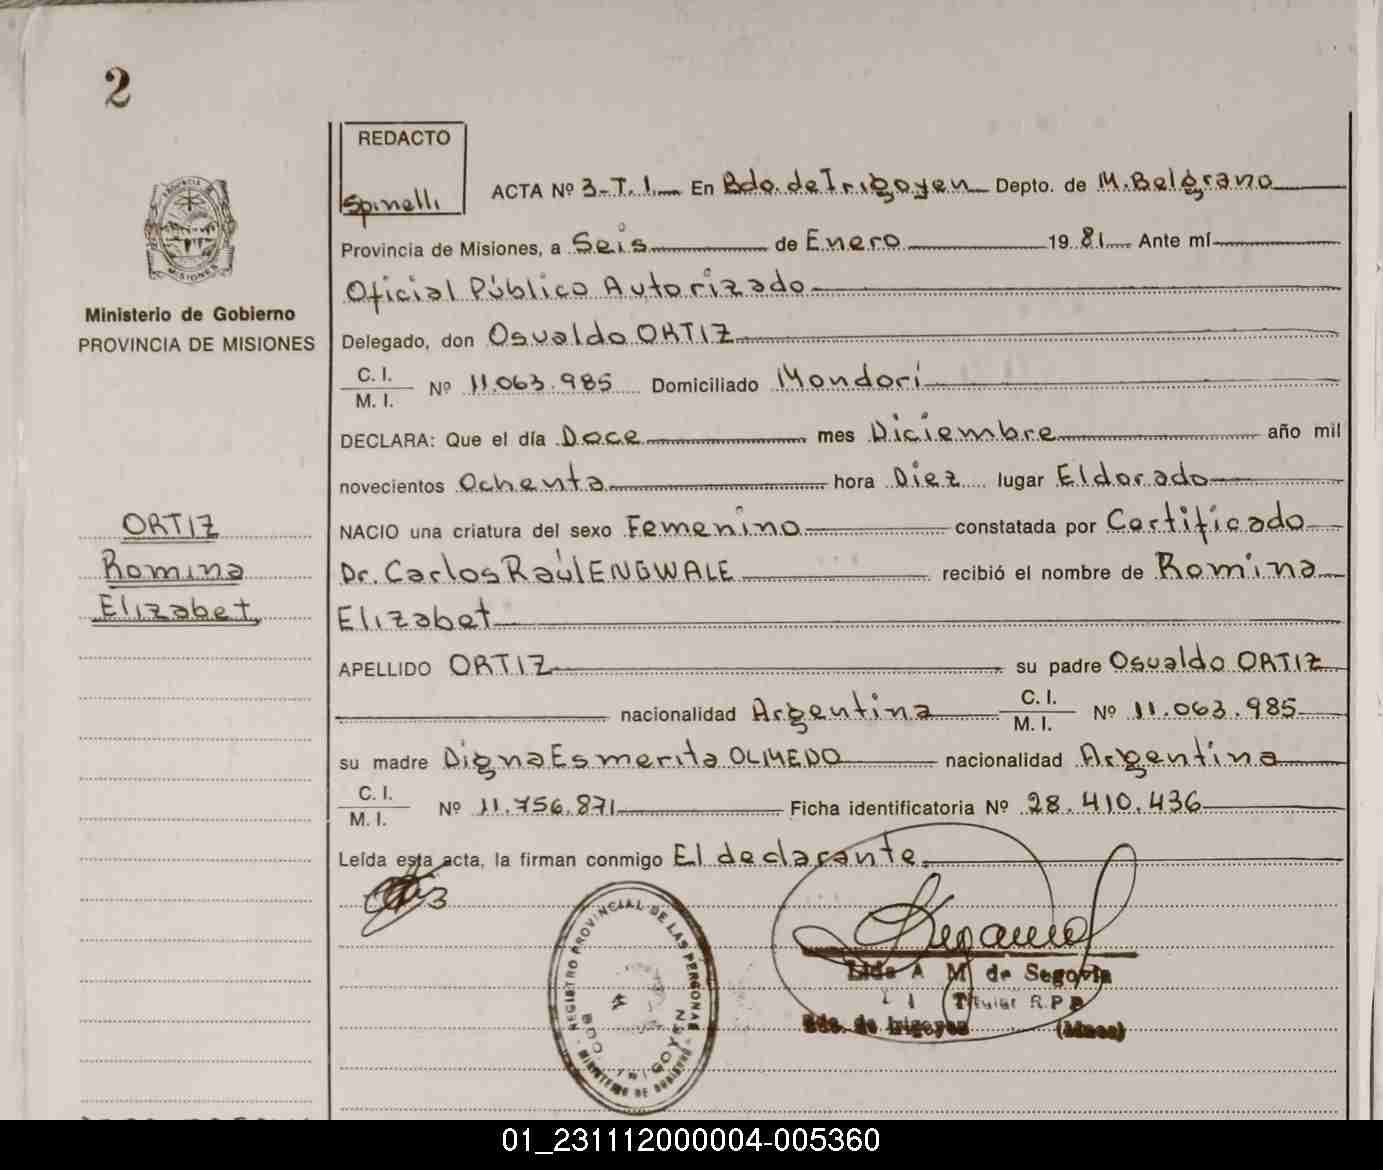 2
REDACTO
Spinelli
ACTA Nº 3-T.1. En Bdo. de Irigoyen Depto. de M. Belgrano
Provincia de Misiones, a Seis de Enero 1981 Ante mí
Oficial Público Autorizado
Ministerio de Gobierno
PROVINCIA DE MISIONES
Delegado, don Osvaldo ORTIZ
C. I.
M. I.
Nº 11.063.985 Domiciliado Mondorí
DECLARA: Que el día Doce mes Diciembre año mil
novecientos Ochenta hora Diez lugar Eldorado
ORTIZ
Romina
Elizabet
NACIO una criatura del sexo Femenino constatada por Certificado
Dr. Carlos Raúl ENGWALE recibió el nombre de Romina
Elizabet
APELLIDO ORTIZ su padre Osvaldo ORTIZ
nacionalidad Argentina C. I. M. I. Nº 11.063.985
su madre Digna Esmerita OLMEDO nacionalidad Argentina
C. I.
M. I.
Nº 11.756.871 Ficha identificatoria Nº 28.410.436
Leída esta acta, la firman conmigo El declarante.
REGISTRO PROVINCIAL DE LAS PERSONAS
MINISTERIO DE GOBIERNO
IRIGOYEN
Lida A M de Segovia
Titular R.P.P
Bdo. de Irigoyen (Mnes)
01_231112000004-005360